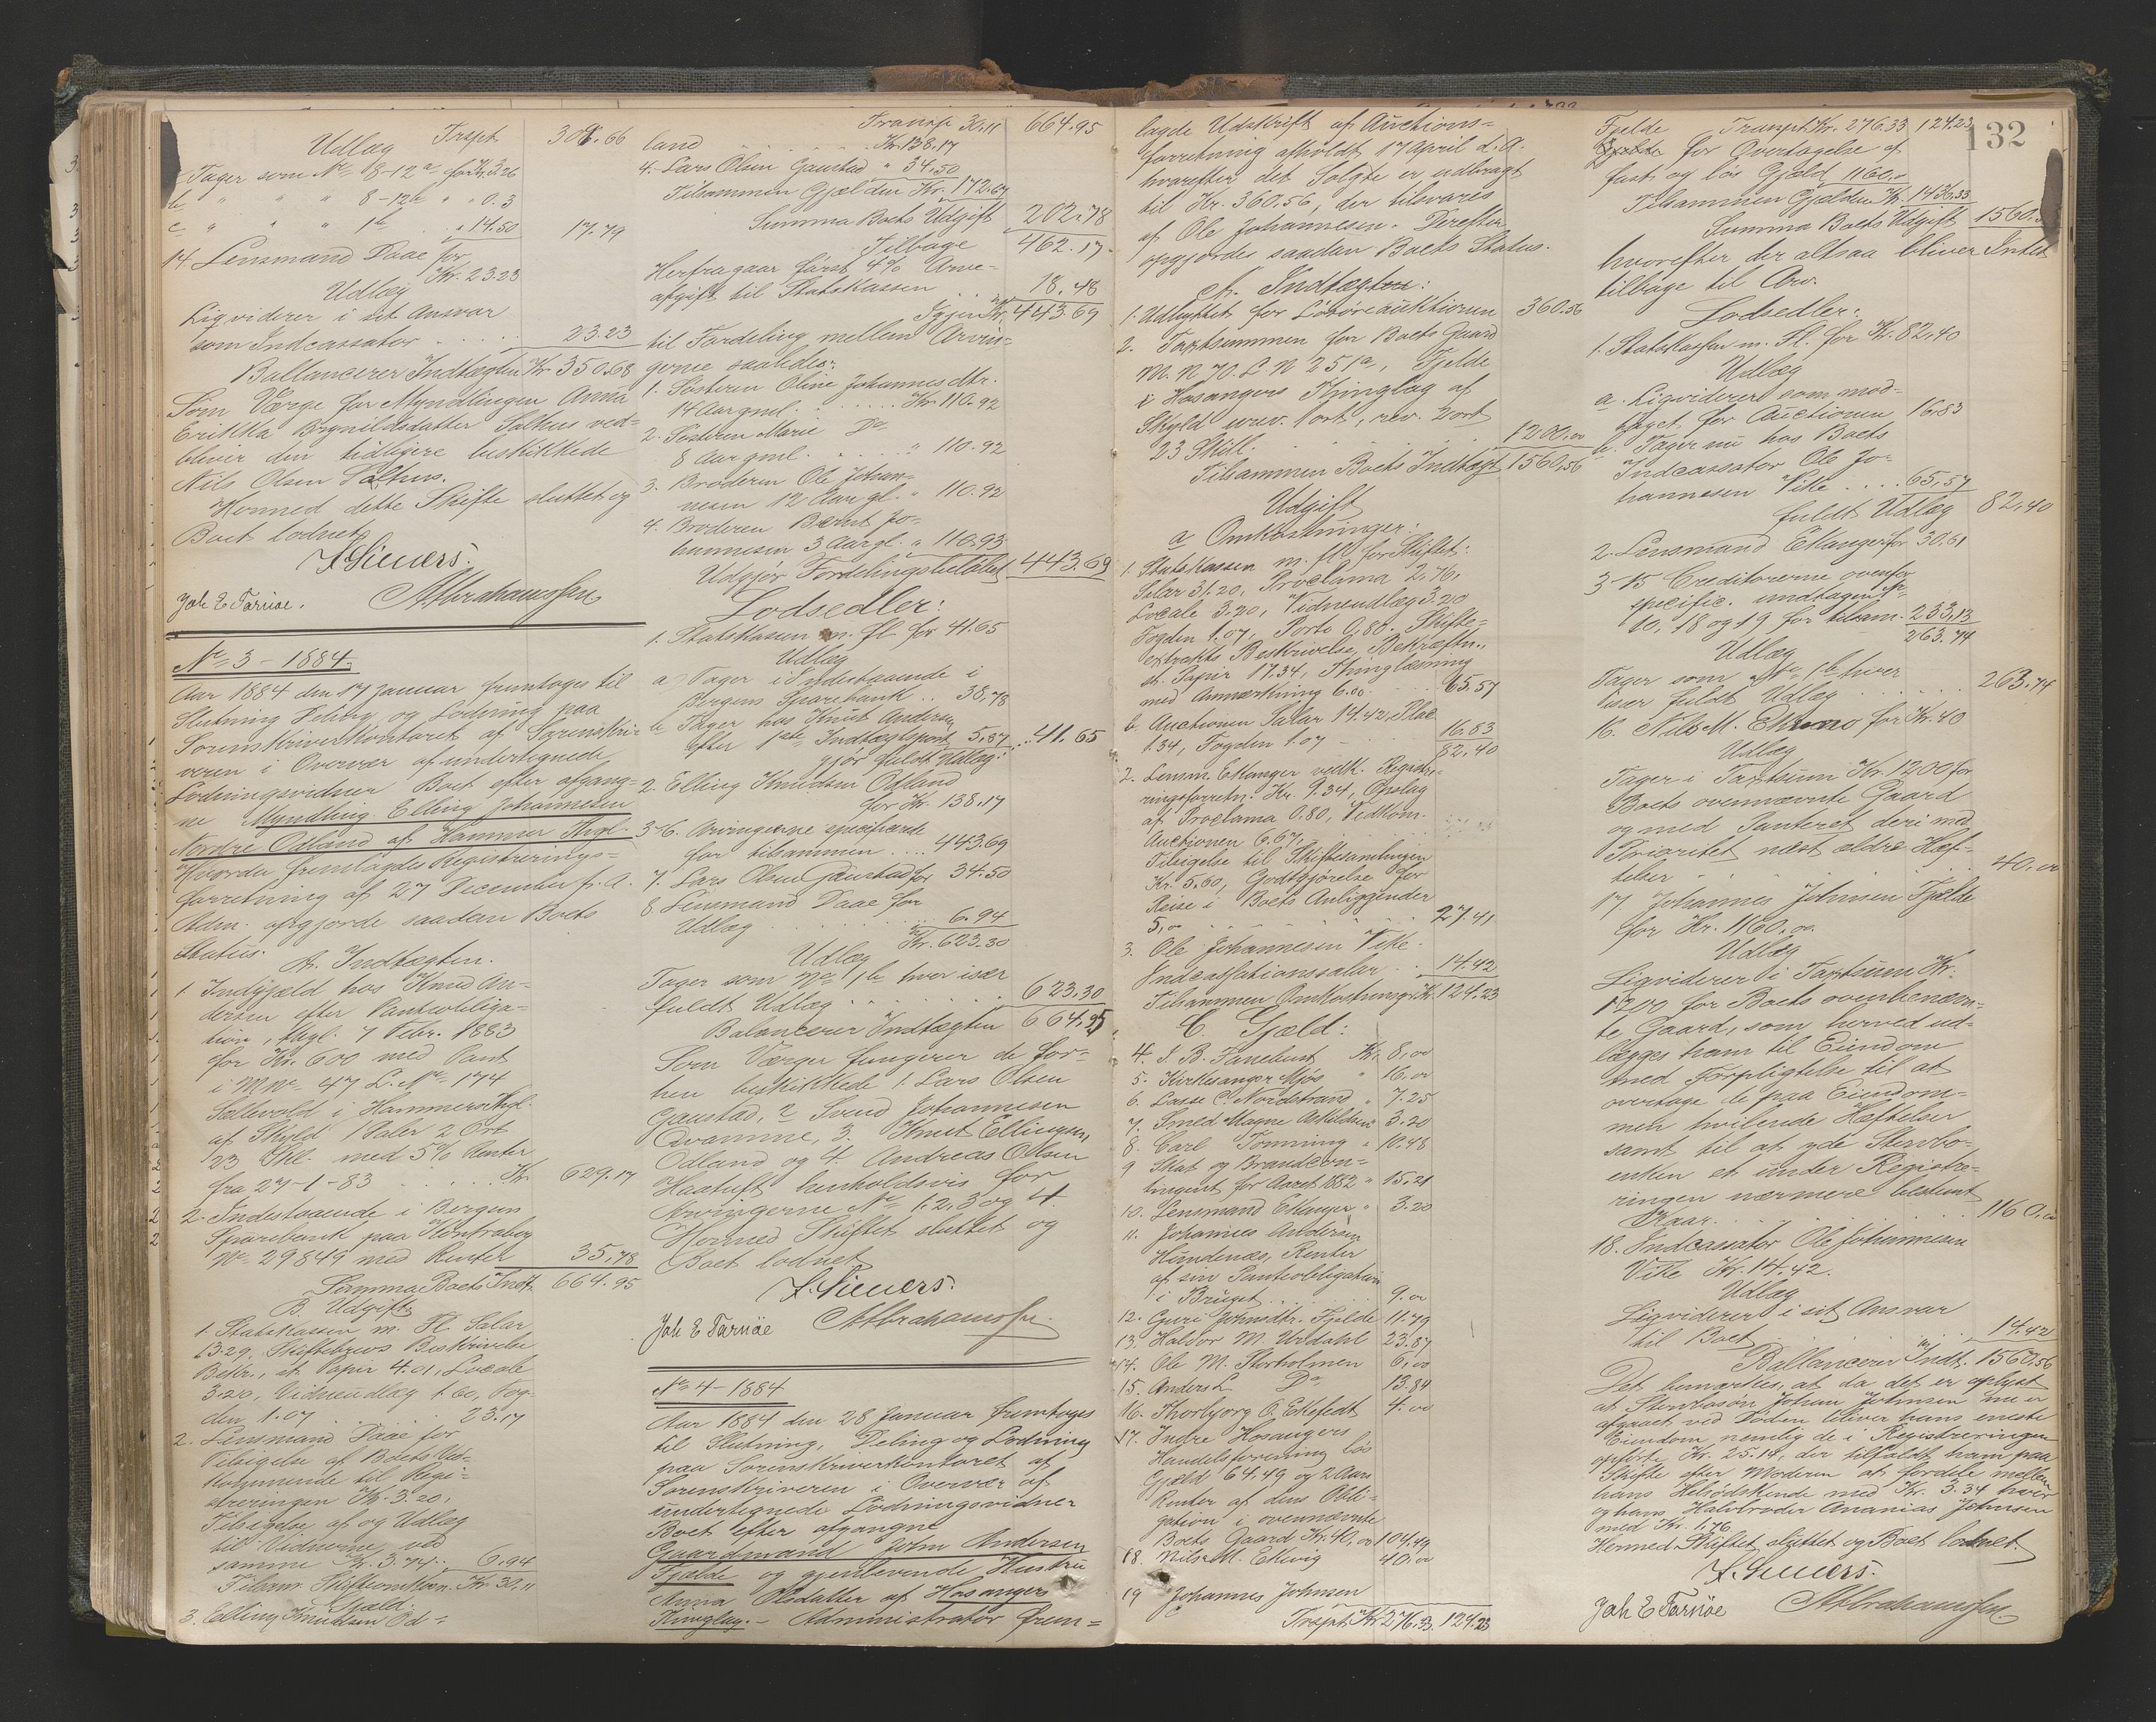 Trspt. 309.66
Udlæg
Tager som No 8-12a for Kr. 3.26
b " " " 8-12b " " 0.3
c " " " 1b " " 14.50 17.79
14 Lensmand Daae for
Kr. 23.23
Udlæg
Liqviderer i sit Ansvar
som Indcassator 23.23
Ballancerer Indtægten Kr 350.68
Som Værge for Myndlingen Anna
Erikka Brynildsdatter Salhus ved-
bliver den tidligere beskikkede
Nils Olsen Salhus.
Hermed dette Skifte sluttet og
Boet lodnet
F. Sieuers.
Joh E Tarnöe. A Abrahamssen
No 3 - 1884.
Aar 1884 den 17 Januar fremtoges til
Slutning Deling og Lodning paa
Sorenskriverkontoret af Sorenskri-
veren i Overvær af undertegnede
Lodningsvidner Boet efter afgang-
ne Myndling Elling Johannesen
Nordre Odland af Hammer Thgl.
Hvorda fremlagdes Registrerings-
forretning af 27 December f. A.
Adm. opgjorde saadan Boets
Status.
A. Indtægten.
1. Indgjæld hos Knud An-
dersen efter Pantobliga-
tion, thgl. 7 Febr. 1883
for Kr. 600 med Pant
i M No 47 L. No 174
Sællevold i Hammers Thgl.
af Skyld 1 Daler 2 Ort
23 Skl. med 5% Renter
fra 27-1-83 Kr. 629.17
2. Indestaaende i Bergens
Sparebank paa Kontrabog
No 29849 med Renter 35.78
Summa Boets Indt. 664.95
B. Udgift
1. Statskassen m. Fl. Salar
13.29, Skiftebrevs Beskrivelse
Bekr., st. Papir 4.01, Locale
3.20, Vidneudlæg 1.60, Fog-
den 1.07 23.17
2. Lensmand Daae for
Tilsigelse af Boets Ved-
kommende til Regi-
streringen Kr. 3.20,
Tilsigelse af og Udlæg
til Vidnerne ved
samme Kr. 3.74: 6.94
Tilsam. Skifteomkostn. Kr. 30.11
Gjæld:
3. Elling Knudsen Od-
Transp 30.11 664.95
land Kr. 138.17
4. Lars Olsen Gaustad " 34.50
Tilsammen Gjælden Kr. 172.67
Summa Boets Udgift 202.78
Tilbage 462.17
Herfra gaar først 4% Arve-
afgift til Statskassen 18.48
Igjen Kr. 443.69
til Fordeling mellem Arvin-
gerne saaledes:
1. Søsteren Oline Johannesdtr.
14 Aar gml. Kr. 110.92
2. Søsteren Marie Do
8 Aar gml. " 110.92
3. Broderen Ole Johan-
nesen 12 Aar gl. " 110.92
4. Broderen Bernt Jo-
hannesen 3 Aar gl. " 110.93
Udgjør Fordelingsbeløbet 443.69
Lodsedler:
1. Statskassen m. fl. for 41.65
Udlæg
a) Tager i Indestaaende i
Bergens Sparebank 35.78
b Tager hos Knut Andersen
efter 1ste Indtægtspost 5.87
gjør fuldt Udlæg: 41.65
2. Elling Knudsen Odland
for Kr. 138.17
3-6. Arvingerne specificerede
for tilsammen 443.69
7. Lars Olsen Gaustad for 34.50
8 Lensmand Daae for
Udlæg 6.94
Kr. 623.30
Udlæg
Tager som No 1b hver især
fuldt Udlæg 623.30
Balancerer Indtægten 664.95
Som Værger fungerer de for-
hen beskikkede 1. Lars Olsen
Gaustad, 2 Svend Johannesen
Qvamme, 3. Knut Ellingsen
Odland og 4. Andreas Olsen
Haatuft henholdsvis for
Arvingerne No 1. 2. 3 og 4.
Hermed Skiftet sluttet og
Boet lodnet
F. Sieuers.
Joh E Tarnöe A Abrahamssen.
No 4 - 1884
Aar 1884 den 28 Januar fremtoges
til Slutning, Deling og Lodning
paa Sorenskriverkontoret af
Sorenskriveren i Overvær af
undertegnede Lodningsvidner
Boet efter afgangne
Gaardmand John Andersen
Fjælde og gjenlevende Hustru
Anna Olsdatter af Hosangers
Thinglag. - Administrator frem-
lagde Udskrift af Auctions-
forretning afholdt 17 April d. A.
hvorefter det Solgte er udbragt
til Kr. 360.56, der tilsvares
af Ole Johannesen. Derefter
opgjordes saadan Boets Status.
A. Indtægten:
1. Udbyttet for Løsøreauktionen 360.56
2. Taxtsummen for Boets Gaard
M. N 70. L N 251a, Fjelde
i Hosangers Thinglag af
Skyld urev. 1 ort, rev. 2 ort
23 Skill. 1200.00
Tilsammen Boets Indtægt 1560.56
Udgift
a Omkostninger:
1. Statskassen m. fl. for Skiftet:
Salar 31.20, Proclama 2.76,
Locale 3.20, Vidneudlæg 3.20
Fogden 1.07, Porto 0.80. Skifte-
extrakts Beskrivelse, Bekræftn.,
st. Papir 17.34, Thinglæsning
med Anmærkning 6.00 65.57
b. Auctionen Salar 14.42, Plac
1.34, Fogden 1.07 16.83
82.40
2. Lensm. Ekanger vedk. Registre-
ringsforretn. Kr. 9.34, Opslag
af Proclama 0.80, Vedkom.
Auctionen 6.67,
Tilsigelse til Skiftesamlingen
Kr. 5.60, Godtgjørelse for
Reise i Boets Anliggender
5.00 27.41
3. Ole Johannesen Vike.
Indcassationssalar 14.42
Tilsammen Omkostninger Kr. 124.23
C. Gjæld:
4. I. B. Fanebust Kr. 8.00
5. Kirkesanger Mjøs " 16.00
6. Lasse C. Nordstrand " 7.25
7. Smed Magne Askildsen " 3.20
8. Carl Tønning " 10.48
9 Skat og Brandcon-
tingent for Aaret 1882 " 15.21
10. Lensmand Ekanger " 3.20
11. Johannes Andersen
Hundenæs, Renter
af sin Pantobligation
i Bruget 9.00
12. Guri Johnsdtr. Fjelde 11.79
13. Halvor M. Urdahl 23.87
14. Ole M. Storholmen 6.00
15. Anders L. Do 13.84
16. Thorbjørg O. Eknes 4.00
17. Indre Hosangers
Handelsforening løs
Gjæld 64.49 og 2 Aars
Renter af dens Obli-
gation i ovennævnte
Boets Gaard Kr. 40,00 104.49
18. Nils M. 40.00
19 Johannes Johnsen
Trspt. Kr 276.33. 124.23
132
Fjelde Transpt Kr. 276.33 124.23
for Overtagelse af
fast og løs Gjæld 1160.
Tilsammen Gjælden Kr. 1436.33
Summa Boets Udgift 1560.
hvorefter der altsaa bliver Intet
tilbage til Arv.
Lodsedler:
1. Statskassen m. Fl. for Kr. 82.40
Udlæg
a. Liqviderer som mod-
taget for Auctionen 16.83
b. Tager nu hos Boets
Indcassator Ole Jo-
hannesen Vike 65.57
fuldt Udlæg 82.40
2. Lensmand Ekanger for 30.61
3-15 Creditorerne ovenfor
specific. undtagen
10, 18 og 19 for tilsam. 233.13
263.74
Udlæg
Tager som No 1b hver
især fuldt Udlæg 263.74
16. Nils M. for Kr. 40
Udlæg
Tager i Taxtsum Kr. 1200 for
Boets ovennævnte Gaard
og med Panteret deri med
Prioritet næst ældre Hæf-
telser 40.00
17. Johannes Johnsen Fjelde
for Kr. 1160.00
Udlæg
Liqviderer i Taxtsum Kr.
1200 for Boets ovenbenævn-
te Gaard, som herved ud-
lægges ham til Eiendom
med Forpligtelse til at
overtage de paa Eiendom-
men hvilende Hæftelser
samt til at yde Stervbo-
enken et under Registre-
ringen nærmere bestemt
Kaar. 1160.00
18. Indcassator Ole Johannesen
Vike Kr. 14.42.
Udlæg
Liqviderer i sit Ansvar
til Boet 14.42
Ballancerer Indt. 1560.56
Det bemærkes, at da det er oplyst
at Stervbosøn Johan Johnsen nu er
afgaaet ved Døden bliver hans eneste
Eiendom nemlig de i Registreringen
opførte Kr. 25.14, der tilfaldt ham paa
Skifte efter Moderen at fordele mellem
hans Helsødskende med Kr. 3.34 hver
og hans Halvbroder Ananias Johnsen
med Kr. 1.76.
Hermed Skiftet sluttet og Boet lodnet
F. Sieuers.
Joh E Tarnöe A Abrahamssen